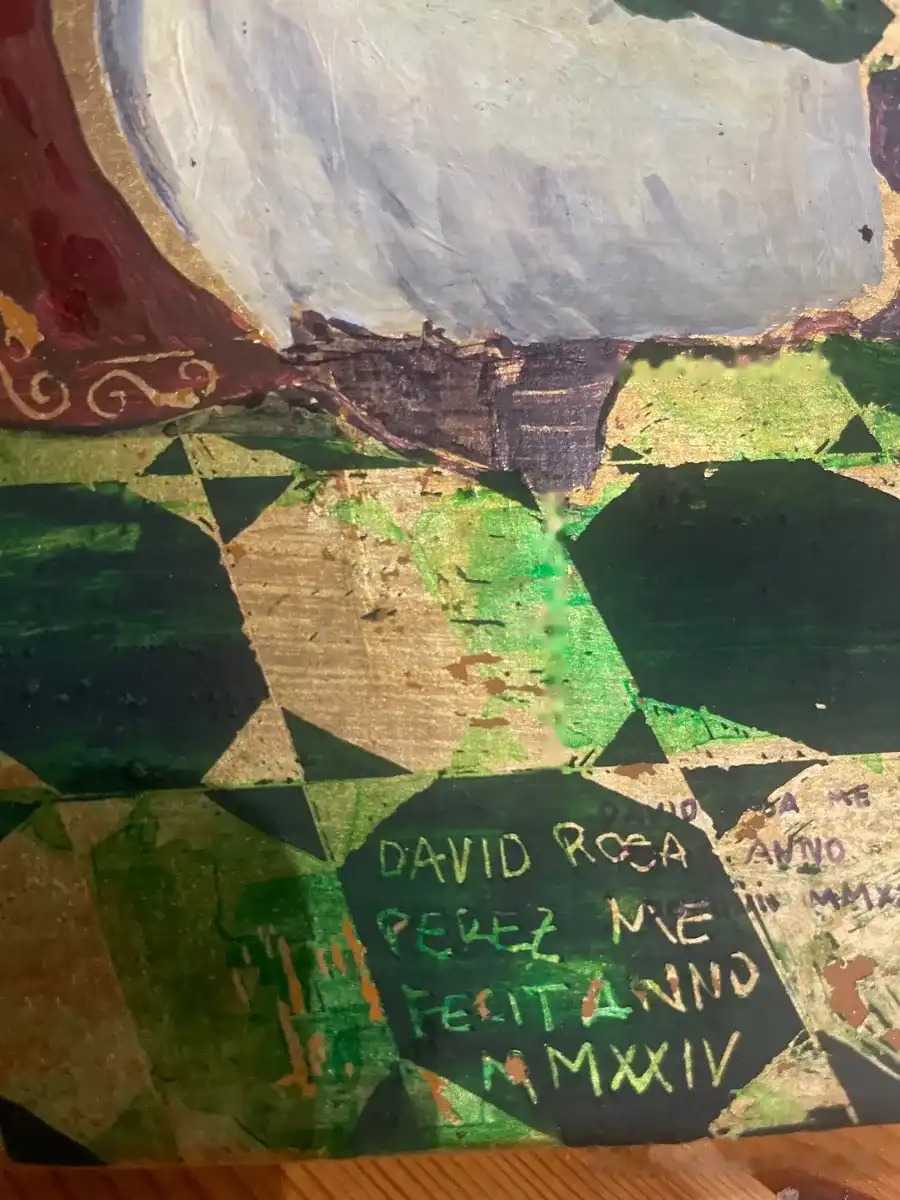 DAVID ROSA
PEREZ ME
FECIT ANNO
MMXXIV
DAVID ROSA ME
ANNO